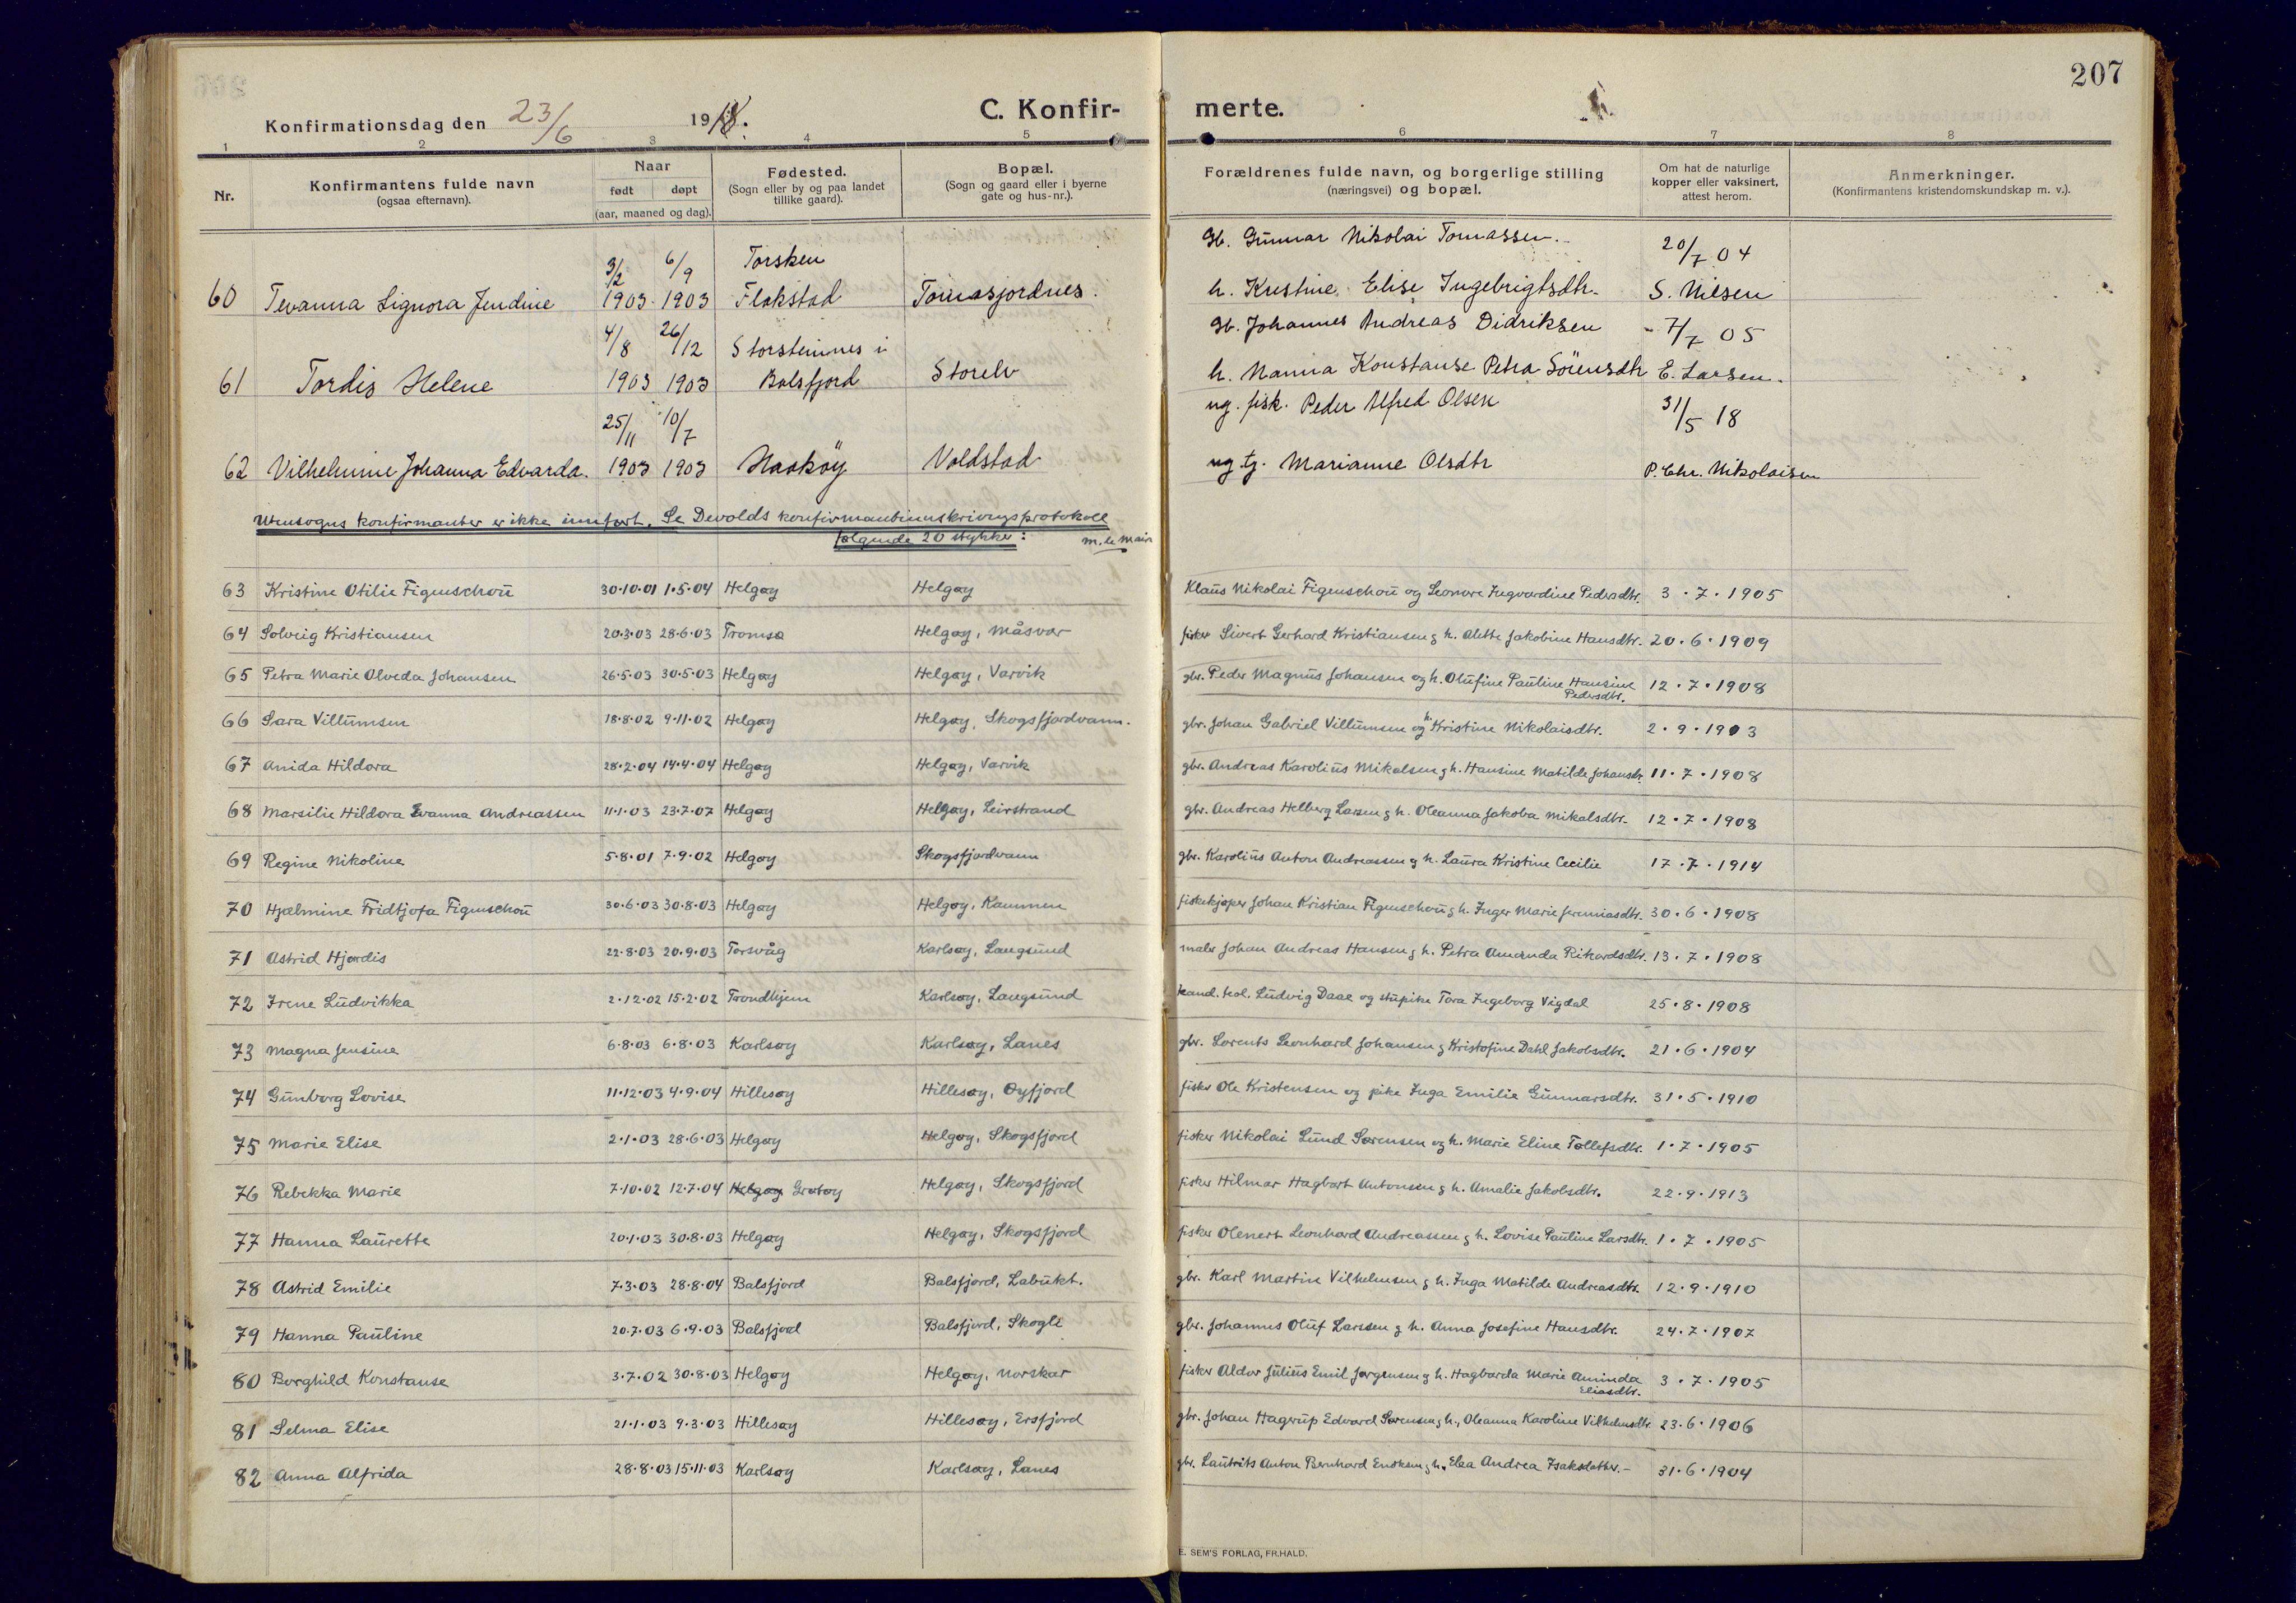 207
Konfirmationsdag den 23/6 1918.
C. Konfir-
merte.
1 2 3 4 5 6 7 8
Nr.
Konfirmantens fulde navn
(ogsaa efternavn).
Naar
født døpt
(aar, maaned og dag).
Fødested.
(Sogn eller by og paa landet
tillike gaard).
Bopæl.
(Sogn og gaard eller i byerne
gate og hus-nr.).
Forældrenes fulde navn, og borgerlige stilling
(næringsvei) og bopæl.
Om hat de naturlige
kopper eller vaksinert,
attest herom.
Anmerkninger.
(Konfirmantens kristendomskundskap m. v.).
3/2 6/9 Torsken Gb. Gunnar Nikolai Tomassen. 20/7 04
60 Tevanna Signora Jendine 1903 1903 Flakstad Tomasjordnes. h. Kristine Elise Ingebrigtsdtr. S. Nilsen
4/8 26/12 Storsteinnes i Gb. Johannes Andreas Didriksen 7/7 05
61 Tordis Helene 1903 1903 Balsfjord Storelv h. Nanna Konstanse Petra Sörensdtr E. Larsen.
25/11 10/7 ug. fisk. Peder Alfred Olsen 31/5 18
62 Vilhelmine Johanna Edvarda. 1903 1903 Haakøy Voldstad ug tj. Marianne Olsdtr P. Chr. Nikolaisen
Utensogns konfirmanter er ikke innført. Se Devolds konfirmantinnskrivngsprotokoll
følgende 20 stykker:
63 Kristine Otilie Figenschou 30.10.01 1.5.04 Helgøy Helgøy Klaus Nikolai Figenschou og Leonore Ingvardine Pedersdtr. 3.7.1905
64 Solveig Kristiansen 20.3.03 28.6.03 Tromsø Helgøy, Måsvær fisker Sivert Gerhard Kristiansen g h. Alette Jakobine Hansdtr. 20.6.1909
65 Petra Marie Olveda Johansen 26.5.03 30.5.03 Helgøy Helgøy, Varvik gbr. Peder Magnus Johansen og h. Olufine Pauline Hansine Pedersdtr. 12.7.1908
66 Sara Villumsen 18.8.02 9.11.02 Helgøy Helgøy, Skogsfjordvann. gbr. Johan Gabriel Villumsen og h. Kristine Nikolaisdtr. 2.9.1903
67 Anida Hildora 28.2.04 14.4.04 Helgøy Helgøy, Varvik gbr. Andreas Karolius Mikalsen g h. Hansine Matilde Johansdtr. 11.7.1908
68 Marsilie Hildora Evanna Andreassen 11.1.03 23.7.07 Helgøy Helgøy, Leirstrand gbr. Andreas Helberg Larsen g h. Oleanna Jakoba Mikalsdtr. 12.7.1908
69 Regine Nikoline 5.8.01 7.9.02 Helgøy Skogsfjordvann gbr. Karolius Anton Andreassen g h. Laura Kristine Cecilie 17.7.1914
70 Hjalmine Fridtjofa Figenschou 30.6.03 30.8.03 Helgøy Helgøy, Kammen fiskekjøper Johan Kristian Figenschou g h. Inger Marie Jeremiasdtr. 30.6.1908
71 Astrid Hjørdis 22.8.03 20.9.03 Torsvåg Karlsøy, Langsund maler Johan Andreas Hansen g h. Petra Amanda Rikardsdtr. 13.7.1908
72 Irene Ludvikka 2.12.02 15.2.02 Trondhjem Karlsøy, Langsund kand. teol. Ludvig Daae og stupike Tora Ingeborg Vigdal 25.8.1908
73 Magna Jensine 6.8.03 6.8.03 Karlsøy Karlsøy, Lanes gbr. Lorents Leonhard Johansen g Kristofine Dahl Jakobsdtr. 21.6.1904
74 Gunborg Lovise 11.12.03 4.9.04 Hillesøy Hillesøy, Øyfjord fisker Ole Kristensen og pike Inga Emilie Gunnarsdtr. 31.5.1910
75 Marie Elise 2.1.03 28.6.03 Helgøy Helgøy, Skogsfjord fisker Nikolai Lund Sørensen og h. Marie Eline Tollefsdtr. 1.7.1905
76 Rebekka Marie 7.10.02 12.7.04 Helgøy Grøtøy Helgøy, Skogsfjord fisker Hilmar Hagbart Antonsen g h. Amalie Jakobsdtr. 22.9.1913
77 Hanna Laurette 20.1.03 30.8.03 Helgøy Helgøy, Skogsfjord fisker Olenert Leonhard Andreassen g h. Lovise Pauline Larsdtr. 1.7.1905
78 Astrid Emilie 7.3.03 28.8.04 Balsfjord Balsfjord, Labukt. gbr. Karl Martin Vilhelmsen g h. Inga Matilde Andreasdtr. 12.9.1910
79 Hanna Pauline 20.7.03 6.9.03 Balsfjord Balsfjord, Skogli gbr. Johannes Oluf Larssen g h. Anna Josefine Hansdtr. 24.7.1907
80 Borghild Konstanse 3.7.02 30.8.03 Helgøy Helgøy, Norskar fisker Aldor Julius Emil Jørgensen g h. Hagbarda Marie Aminda Eliasdtr. 3.7.1905
81 Selma Elise 21.1.03 9.3.03 Hillesøy Hillesøy, Ersfjord gbr. Johan Hagerup Edvard Sørensen g h., Oleanna Karoline Vilhelmsdtr. 23.6.1906
82 Anna Alfrida 28.8.03 15.11.03 Karlsøy Karlsøy, Lanes gbr. Laurits Anton Bernhard Enoksen g h. Elea Andrea Isaksdatter. 31.6.1904
E. SEM'S FORLAG, FR.HALD.